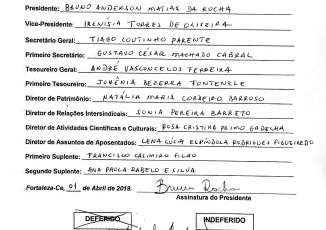 Presidente: BRUNO ANDERSON MATIAS DA ROCHA
Vice-Presidente: IRENÍSIA TORRES DE OLIVEIRA
Secretário Geral: TIAGO COUTINHO PARENTE
Primeiro Secretário: GUSTAVO CÉSAR MACHADO CABRAL
Tesoureiro Geral: ANDRÉ VASCONCELOS FERREIRA
Primeiro Tesoureiro: JOVÊNIA BEZERRA FONTENELE
Diretor de Patrimônio: NATÁLIA MARIS CORDEIRO BARROSO
Diretor de Relações Intersindicais: SONIA PEREIRA BARRETO
Diretor de Atividades Científicas e Culturais: ROSA CRISTINA PRIMO GADELHA
Diretor de Assuntos de Aposentados: LENA LÚCIA ESPÍNDOLA RODRIGUES FIGUEIREDO
Primeiro Suplente: FRANCISCO CASIMIRO FILHO
Segundo Suplente: ANA PAULA RABELO E SILVA
Fortaleza-Ce, 01 de Abril de 2018. Bruno Rocha
Assinatura do Presidente
DEFERIDO INDEFERIDO